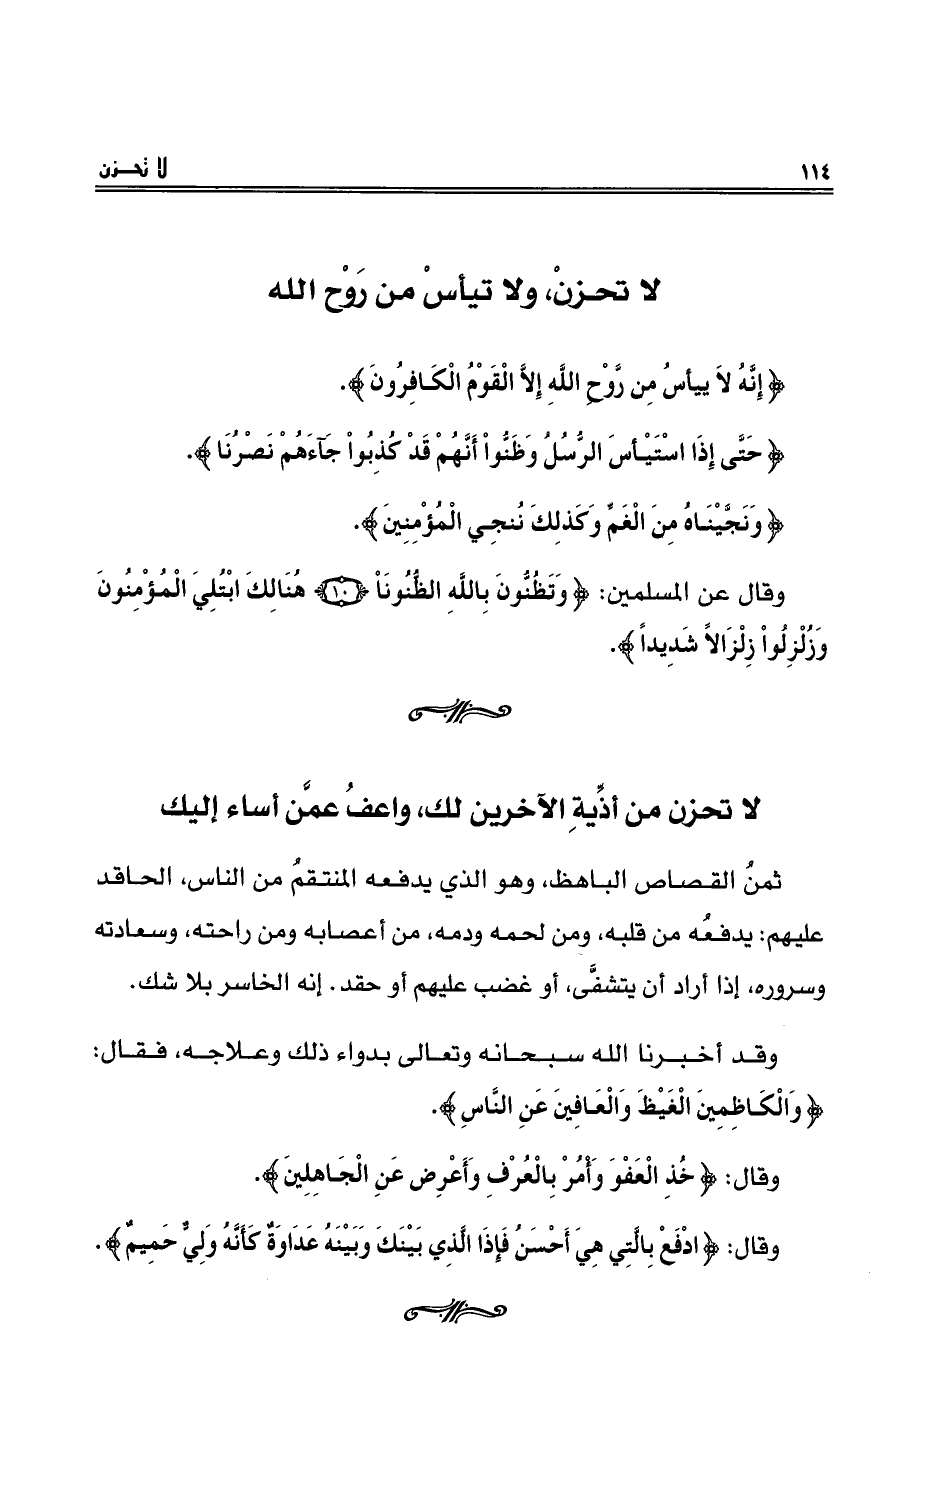 ١١٤ لا تحزن
لا تحزنْ، ولا تيأسْ من رَوْح الله
﴿ إِنَّهُ لاَ ييأسُ مِن رَّوْحِ اللَّهِ إِلاَّ الْقَوْمُ الْكَافِرُونَ ﴾.
﴿ حَتَّى إِذَا اسْتَيْأسَ الرُّسُلُ وَظَنُّواْ أَنَّهُمْ قَدْ كُذِبُواْ جَآءَهُمْ نَصْرُنَا ﴾.
﴿ وَنَجَّيْنَاهُ مِنَ الْغَمِّ وَكَذلِكَ نُنجِي الْمُؤْمِنِينَ ﴾.
وقال عن المسلمين: ﴿ وَتَظُنُّونَ بِاللَّهِ الظُّنُونَاْ ﴿١٠﴾ هُنَالِكَ ابْتُلِيَ الْمُؤْمِنُونَ
وَزُلْزِلُواْ زِلْزَالاً شَدِيداً ﴾.
لا تحزن من أذَّيةِ الآخرين لك، واعفُ عمَّن أساء إليك
ثمنُ القصاص الباهظ، وهو الذي يدفعه المنتقمُ من الناس، الحاقد
عليهم: يدفعُه من قلبه، ومن لحمه ودمه، من أعصابه ومن راحته، وسعادته
وسروره، إذا أراد أن يتشفَّى، أو غضب عليهم أو حقد. إنه الخاسر بلا شك.
وقد أخبرنا الله سبحانه وتعالى بدواء ذلك وعلاجه، فقال:
﴿ وَالْكَاظِمِينَ الْغَيْظَ وَالْعَافِينَ عَنِ النَّاسِ ﴾.
وقال: ﴿ خُذِ الْعَفْوَ وَأْمُرْ بِالْعُرْفِ وَأَعْرِض عَنِ الْجَاهِلِينَ ﴾.
وقال: ﴿ ادْفَعْ بِالَّتِي هِيَ أَحْسَنُ فَإِذَا الَّذِي بَيْنَكَ وَبَيْنَهُ عَدَاوَةٌ كَأَنَّهُ وَلِيٌّ حَمِيمٌ ﴾.